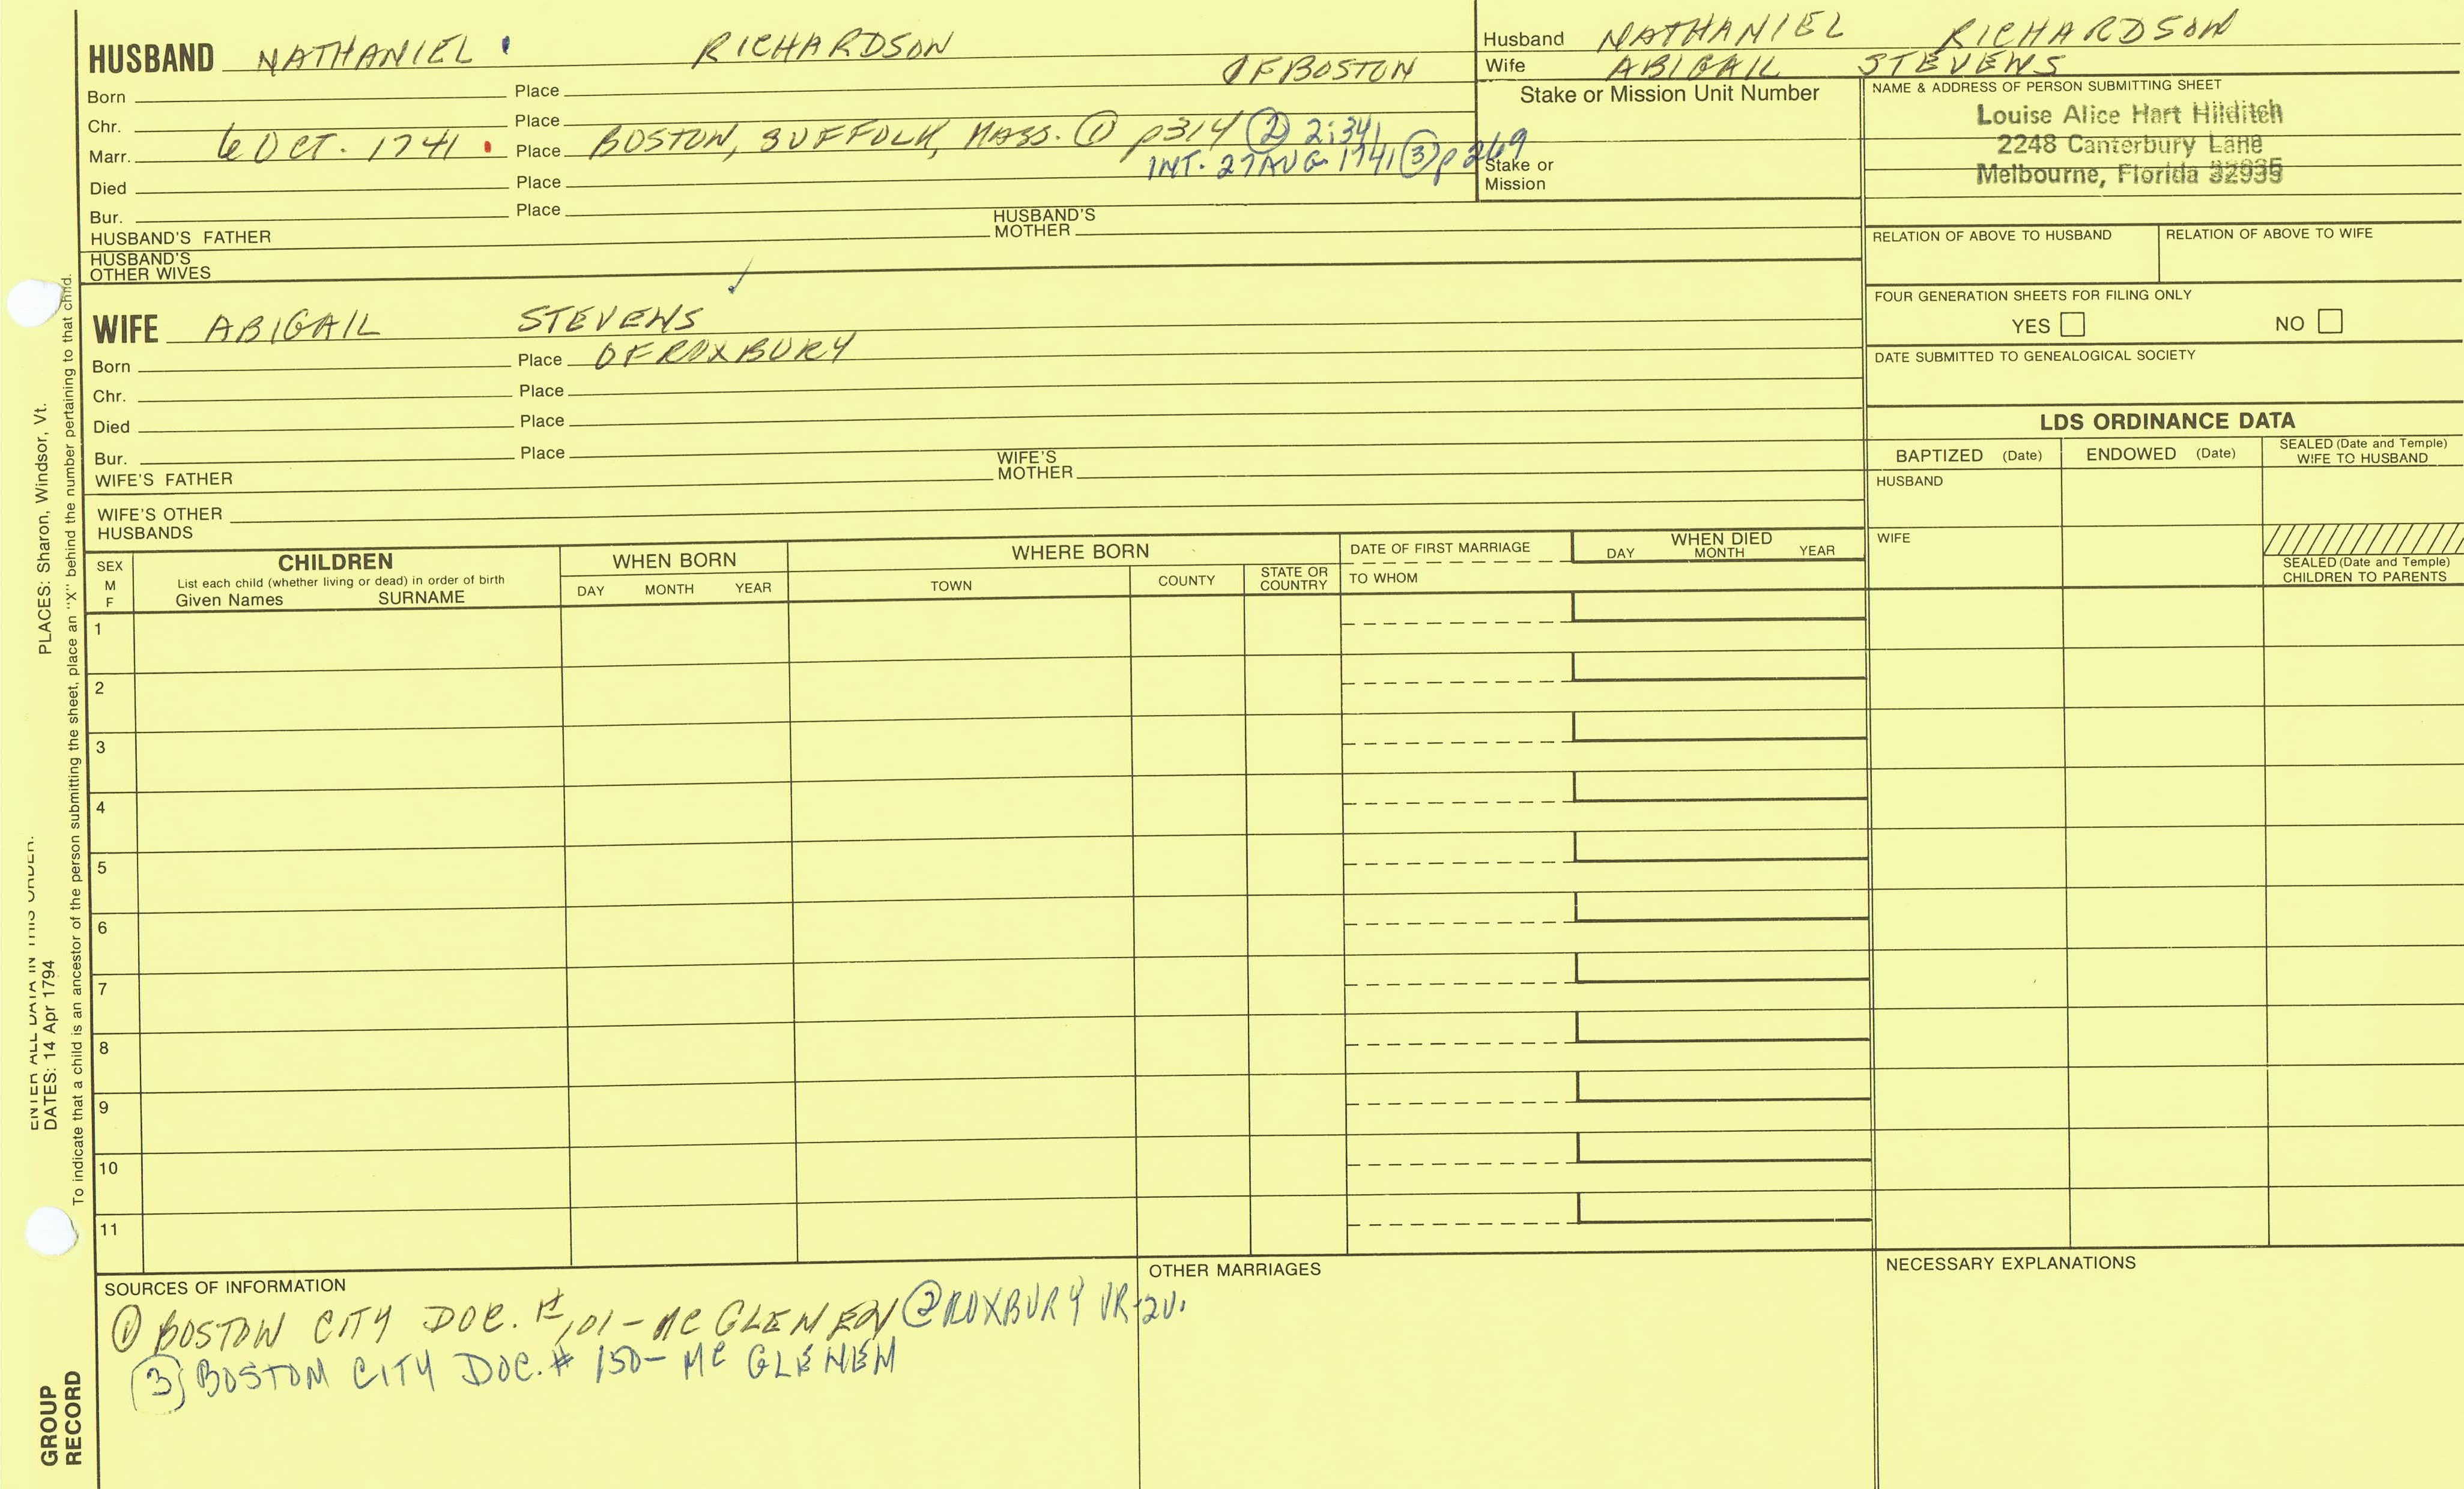 HUSBAND NATHANIEL RICHARDSON
OF BOSTON
Born Place
Chr. Place
Marr. 6 OCT. 1741 Place BOSTON, SUFFOLK, MASS. ① p314 ② 2:341
INT. 27 AUG 1741 ③ p 269
Died Place
Bur. Place
HUSBAND'S FATHER HUSBAND'S MOTHER
HUSBAND'S OTHER WIVES
WIFE ABIGAIL STEVENS
Born Place OF ROXBURY
Chr. Place
Died Place
Bur. Place
WIFE'S FATHER WIFE'S MOTHER
WIFE'S OTHER HUSBANDS
Husband NATHANIEL RICHARDSON
Wife ABIGAIL STEVENS
Stake or Mission Unit Number
Stake or
Mission
NAME & ADDRESS OF PERSON SUBMITTING SHEET
Louise Alice Hart Hilditch
2248 Canterbury Lane
Melbourne, Florida 32935
RELATION OF ABOVE TO HUSBAND RELATION OF ABOVE TO WIFE
FOUR GENERATION SHEETS FOR FILING ONLY
YES NO
DATE SUBMITTED TO GENEALOGICAL SOCIETY
LDS ORDINANCE DATA
BAPTIZED (Date) ENDOWED (Date) SEALED (Date and Temple) WIFE TO HUSBAND
HUSBAND
WIFE
SEALED (Date and Temple)
CHILDREN TO PARENTS
SEX M F
CHILDREN
List each child (whether living or dead) in order of birth
Given Names SURNAME
WHEN BORN
DAY MONTH YEAR
WHERE BORN
TOWN COUNTY STATE OR COUNTRY
DATE OF FIRST MARRIAGE
TO WHOM
WHEN DIED
DAY MONTH YEAR
1
2
3
4
5
6
7
8
9
10
11
SOURCES OF INFORMATION
① BOSTON CITY DOC. # 101 - MC GLENEN ② ROXBURY VR-2V.
③ BOSTON CITY DOC. # 150 - MC GLENEN
OTHER MARRIAGES
NECESSARY EXPLANATIONS
ENTER ALL DATA IN THIS ORDER:
DATES: 14 Apr 1794
PLACES: Sharon, Windsor, Vt.
To indicate that a child is an ancestor of the person submitting the sheet, place an "X" behind the number pertaining to that child.
GROUP
RECORD